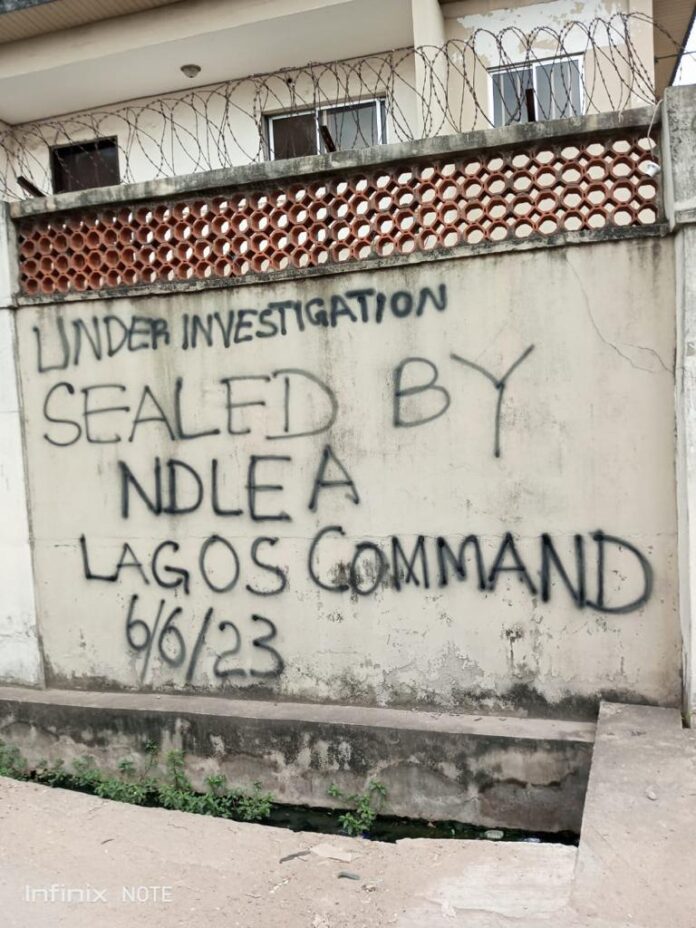 UNDER INVESTIGATION
SEALED BY
NDLEA
LAGOS COMMAND
6/6/23
Infinix NOTE